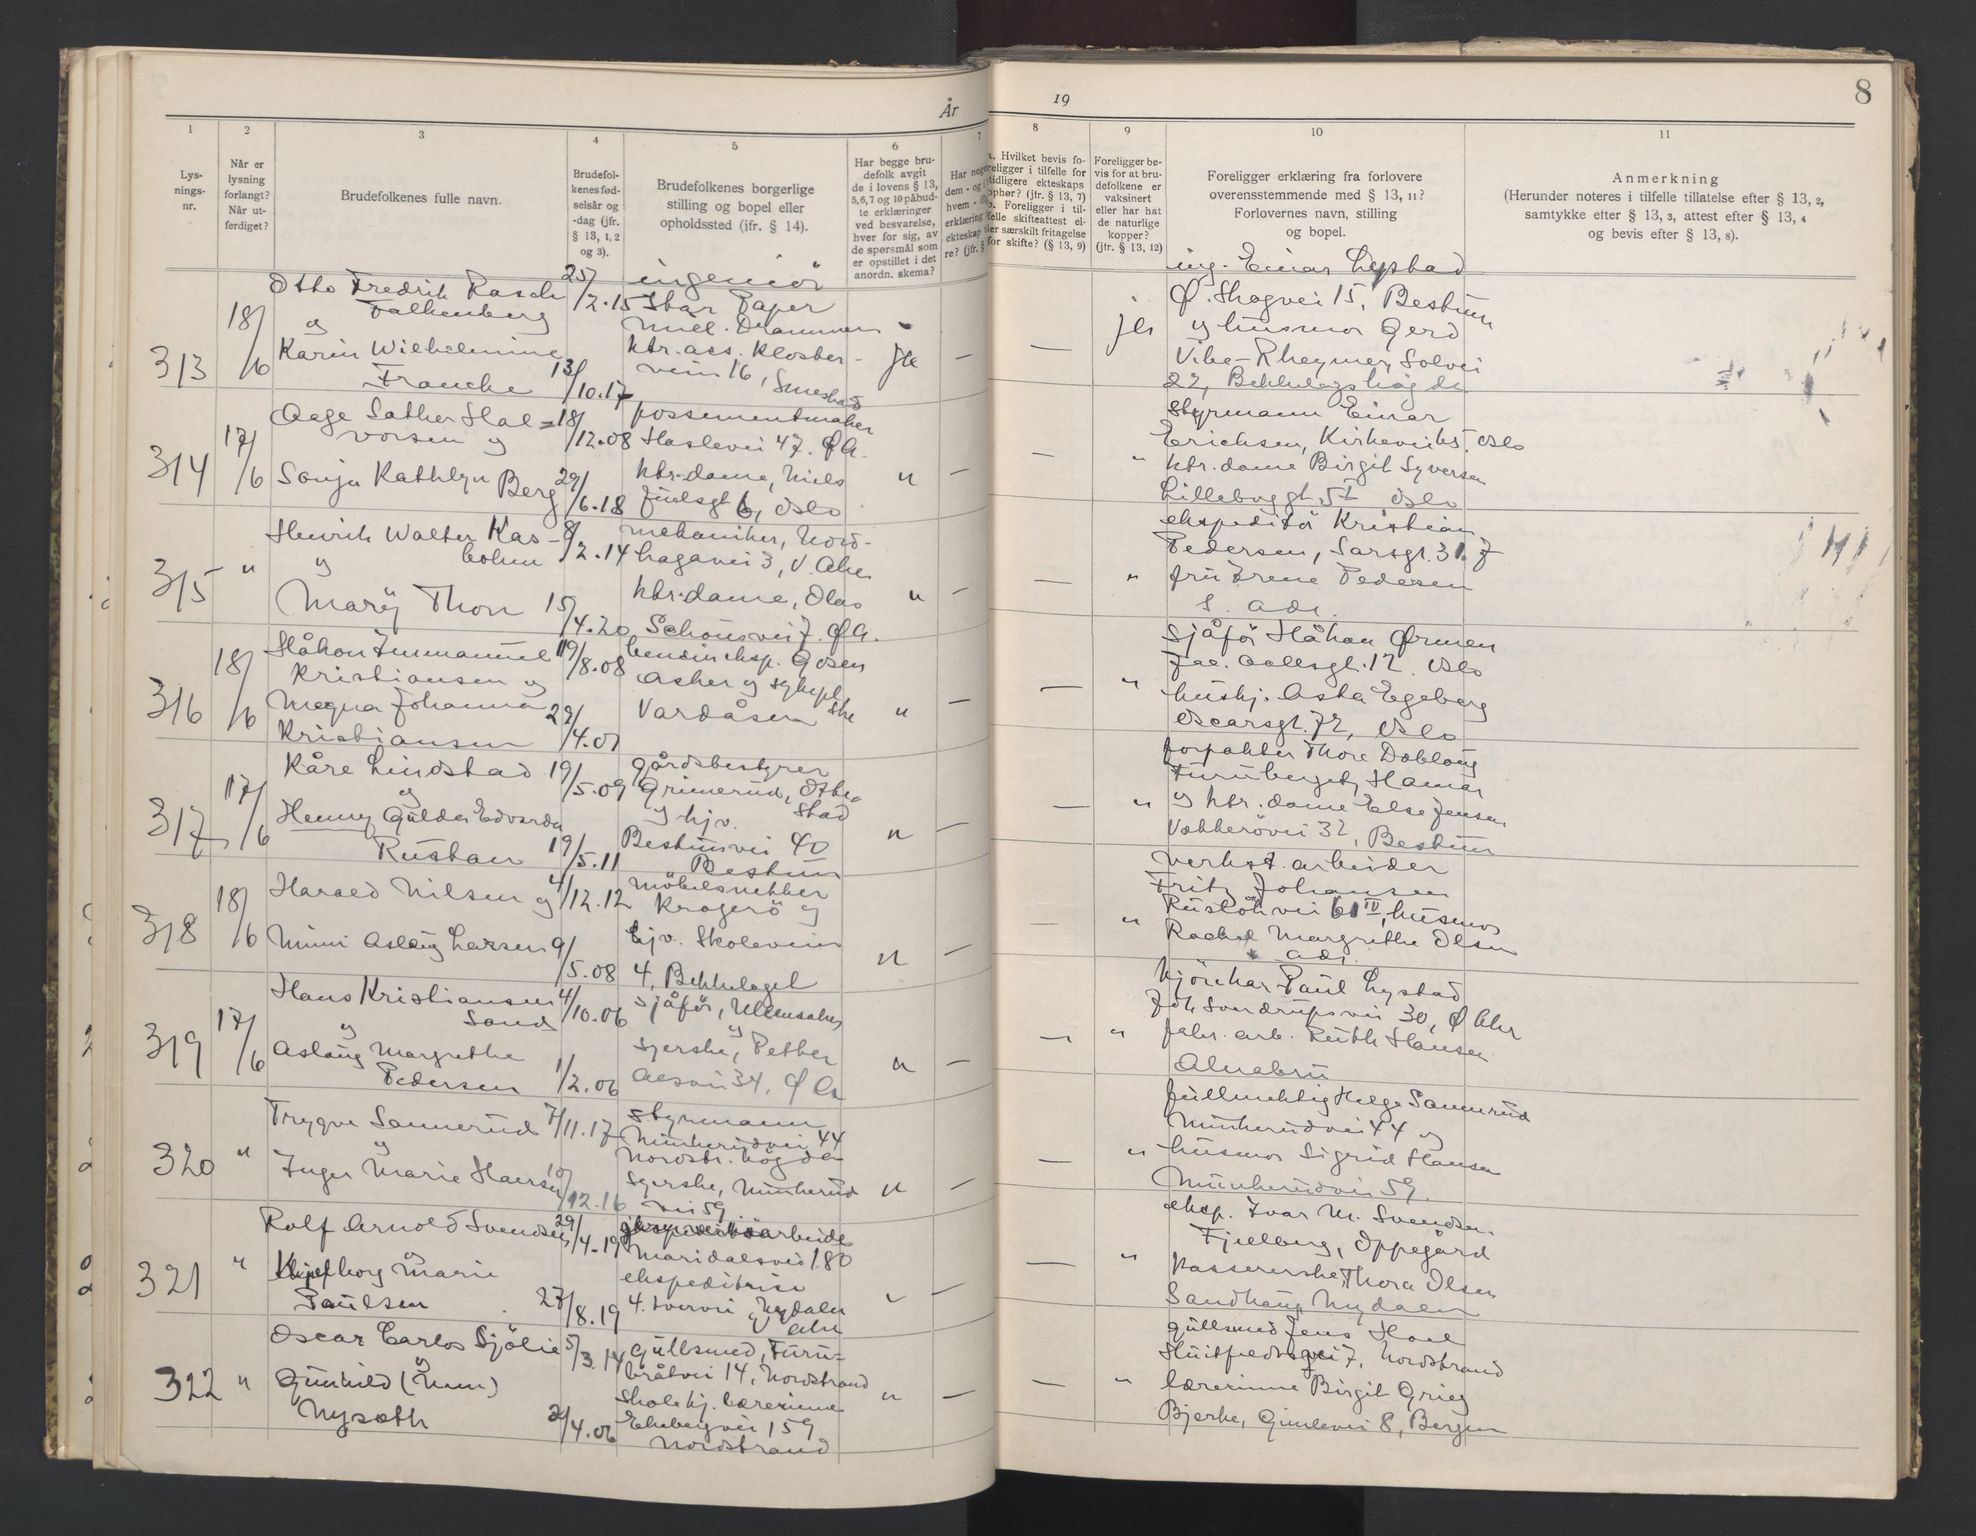 År
19
8
1
2
3
4
5
6
7
8
9
10
11
Lys-
nings-
nr.
Når er
lysning
forlangt?
Når ut-
ferdiget?
Brudefolkenes fulle navn.
Brudefol-
kenes fød-
selsår og
-dag (jfr.
§ 13, 1, 2
og 3).
Brudefolkenes borgerlige
stilling og bopel eller
opholdssted (jfr. § 14).
Har begge bru-
defolk avgit
de i lovens § 13,
5, 6, 7 og 10 påbud-
te erklæringer
ved besvarelse,
hver for sig, av
de spørsmål som
er opstillet i det
anordn. skema?
Har noge
dem - og i
hvem -
erklæring
ekteskap
re? (jfr. §
a. Hvilket bevis fo-
religger i tilfelle for
tidligere ekteskaps
opher? (jfr. § 13, 7)
b. Foreligger i til-
felle skifteattest el-
ler særskilt fritagelse
for skifte? (§ 13, 9)
Foreligger be-
vis for at bru-
defolkene er
vaksinert
eller har hat
de naturlige
kopper?
(jfr. § 13, 12)
Foreligger erklæring fra forlovere
overensstemmende med § 13, 11?
Forlovernes navn, stilling
og bopel.
Anmerkning
(Herunder noteres i tilfelle tillatelse efter § 13, 2,
samtykke efter § 13, 3, attest efter § 13, 4
og bevis efter § 13, 8).
313
18/6
Otto Fredrik Rasch
Falkenberg
og
Karin Wilhelmine
Francke
25/2.15
13/10.17
ingeniør
Star Paper
Mill. Drammen
ktr.ass. Kloster-
veien 16, Smestad
ja
—
—
ja
ing. Einar Lystad
Ø. Skogvei 15, Bestum
og husmor Gerd
Vibe-Rheymer, Solvei
22, Bekkelagshøgda
314
17/6
Aage Sather Hal-
vorsen og
Sonja Kathlyn Berg
18/12.08
29/6.18
possementmaker
Haslevei 47. Ø.A.
ktr.dame, Niels
Juelsgt 6, Oslo
"
—
—
"
Styrmann Einar
Erichsen, Oslo
ktr.dame Birgit Syversen
Oslo
315
"
Henrik Walter Kas-
bohm
og
Mary Thon
8/2.14
15/4.20
mekaniker, Nord-
hagavei 3, V. Aker
ktr.dame, Olav
Schousvei 7. Ø.A.
"
—
—
"
ekspeditør Kristian
Pedersen, Sarsgt. 31.
fru Irene Pedersen
s. adr.
316
18/6
Håkon Immanuel
Kristiansen og
Magna Johanna
Kristiansen
19/8.08
29/4.07
bensineksp. Gosen
Asker og sykepl.
ske
Vardåsen
"
—
—
"
sjåfør Håkon Ørmen
Jac. Aallsgt. 17 Oslo
hushj. Asta Egeberg
Oscarsgt. 72, Oslo
317
17/6
Kåre Lindstad
og
Henny Gulda Edvarda
Rustan
19/5.09
19/5.11
gårdsbestyrer
Grimerud, Otte-
stad
og hjv.
Bestumvei 40
Bestum
"
—
—
"
forpakter Thore Dobloug
Furuberget, Hamar
og ktr.dame Else Jensen
Vækkerøvei 32, Bestum
318
18/6
Harald Nilsen og
Mimi Aslaug Larsen
4/12.12
9/5.08
møbelsnekker
Kragerø og
hjv. Skoleveien
4, Bekkelaget
"
—
—
"
verkst. arbeider
Fritz Johansen
Rusløkvei 61 IV, husmor
Rachel Margrethe Olsen
s. adr.
319
17/6
Hans Kristiansen
Sand
og
Aslaug Margrethe
Pedersen
4/10.06
1/2.06
sjåfør, Ullensaker
og
syerske, Petter
Aasvei 34, Ø Ak
"
—
—
"
kjørekar Paul Lystad
Joh. Sverdrupsvei 30, Ø Akr
fabr. arb. Ruth Hansen
Alnabru
320
"
Trygve Sannerud
og
Inger Marie Hansen
7/11.17
10/12.16
styrmann
Munkerudvei 44
Nordstr. høgda
syerske, Munkerud
vei 59
"
—
—
"
fullmektig Helge Sannerud
Munkerudvei 44 og
husmor Sigrid Hansen
Munkerudvei 59.
321
"
Rolf Arnold Svendsen
og
Kjellborg Marie
Paulsen
29/4.19
27/8.19
arbeide
Maridalsvei 180
ekspeditrise
4. tvervei, Nydalen
Aker
"
—
—
"
eksp. Ivar M. Svendsen.
Fjellberg, Oppegård
Kassererske Thora Olsen
Sandhaug Nydalen
322
"
Oscar Carlos Sjölie
og
Gunhild (Num)
Nysæth
5/3.14
2/4.06
gullsmed, Furu-
bråtvei 14, Nordstrand
skolekj. lærerinne
Ekebergvei 159
Nordstrand
"
—
—
"
gullsmed Jens Hoel
Huitfeldtsvei 7, Nordstrand
lærerinne Birgit Grieg
Bjerke, Gimlevei 8, Bergen